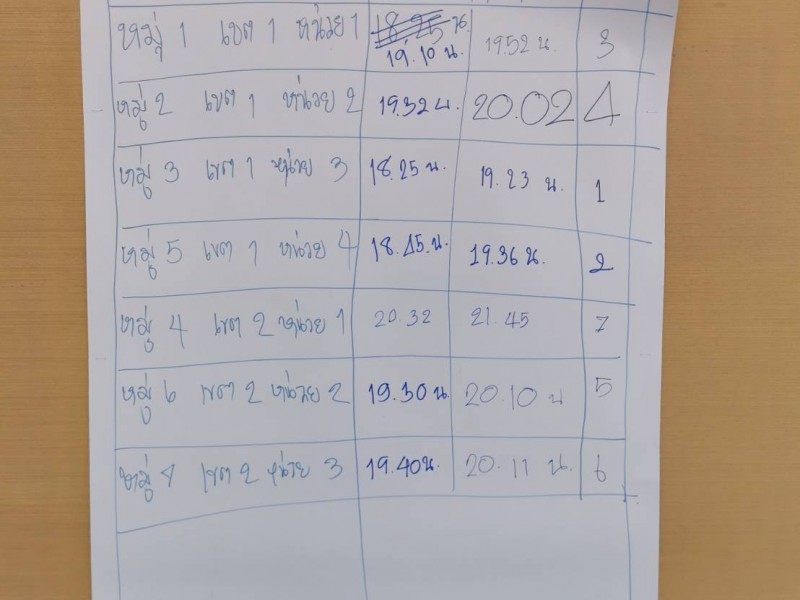 หมู่ 1 เขต 1 หน่วย 1 19.10 น. 19.52 น. 3
หมู่ 2 เขต 1 หน่วย 2 19.32 น. 20.02 4
หมู่ 3 เขต 1 หน่วย 3 18.25 น. 19.23 น. 1
หมู่ 5 เขต 1 หน่วย 4 18.45 น. 19.36 น. 2
หมู่ 4 เขต 2 หน่วย 1 20.32 21.45 7
หมู่ 6 เขต 2 หน่วย 2 19.30 น. 20.10 น 5
หมู่ เขต 2 หน่วย 3 19.40 น. 20.11 น. 6